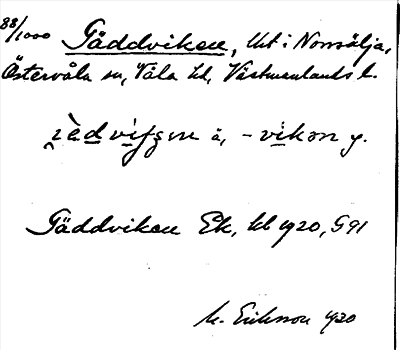 88/1000 Gäddviken, lht i Nonsälja,
Östervåla sn, Våla hd, Västmanlands l.
å, -vikən y.
Gäddviken Ek, bl 1920, S91
M. Eriksson 1920